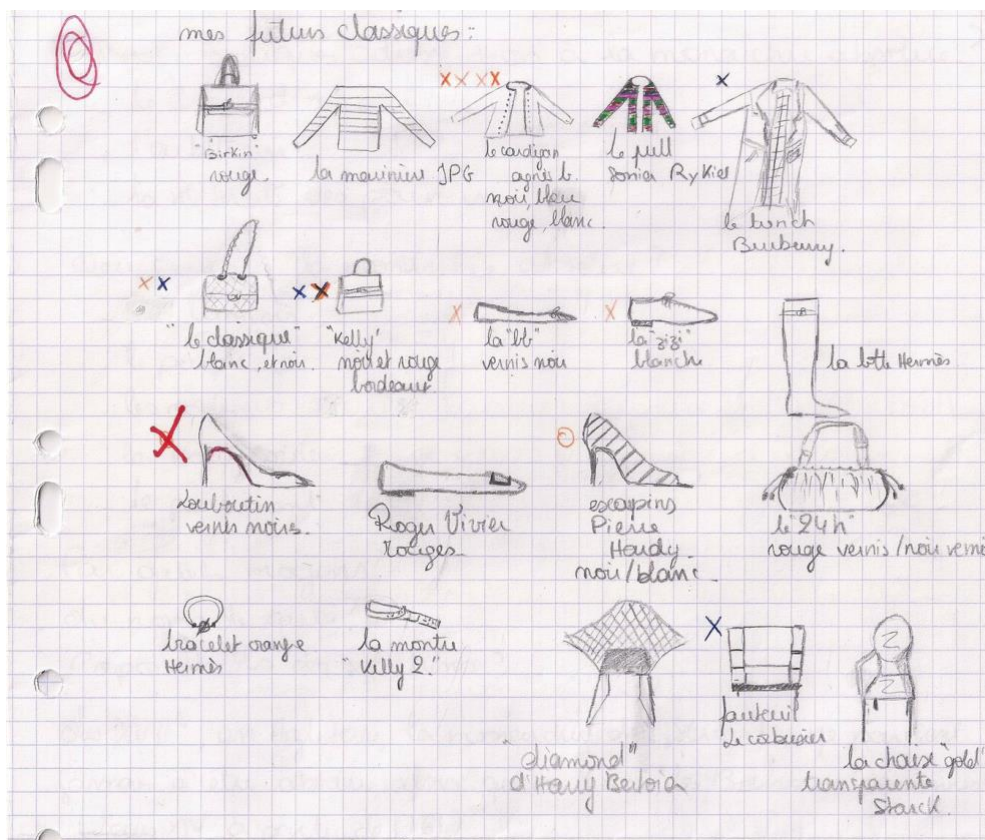 mes futurs classiques:
"Birkin"
rouge.
la marinière JPG
le cardigan
agnès b.
noir, bleu
rouge, blanc.
le pull
Sonia Rykiel
le trench
Burberry.
"le classique"
blanc, et noir.
"Kelly"
noir et rouge
bordeaux
la "bb"
vernis noir
la "zizi"
blanche
la botte Hermès
Louboutin
vernis noirs.
Roger Vivier
rouges.
escarpins
Pierre
Hardy
noir/blanc.
le "24h"
rouge vernis/noir verni
bracelet orange
Hermès
la montre
"Kelly 2."
"diamond"
d'Harry Bertoia
fauteuil
Le corbusier
la chaise "gold"
transparente
Starck.